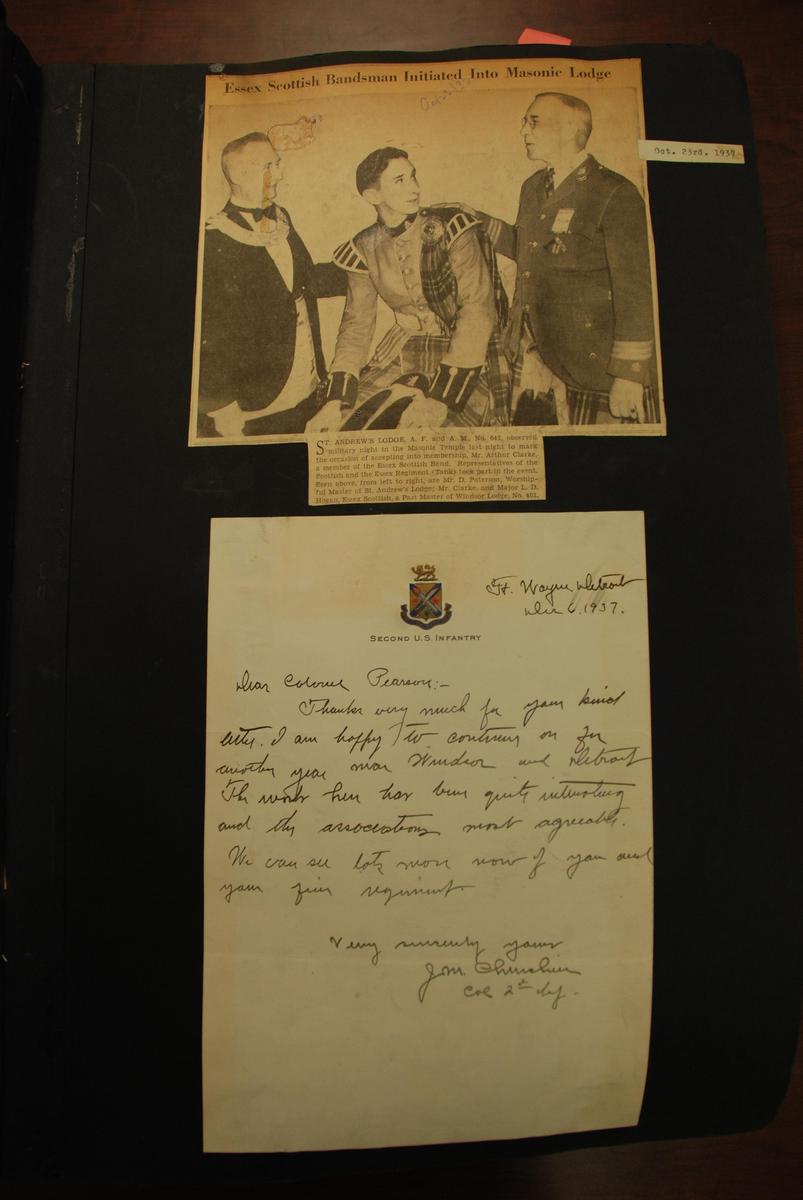 Essex Scottish Bandsman Initiated Into Masonic Lodge
Oct. 23rd. 1937
ST. ANDREW'S LODGE, A. F. and A. M., No. 642, observed
military night in the Masonic Temple last night to mark
the occasion of accepting into membership, Mr. Arthur Clarke,
a member of the Essex Scottish Band. Representatives of the
Scottish and the Essex Regiment (Tank) took part in the event.
Seen above, from left to right, are Mr. D. Peterson, Worship-
ful Master of St. Andrew's Lodge; Mr. Clarke, and Major L. D.
Hogan, Essex Scottish, a Past Master of Windsor Lodge, No. 403.
Ft. Wayne, Detroit
Dec 6, 1937.
SECOND U.S. INFANTRY
Dear Colonel Pearson:-
Thanks very much for your kind
letter. I am happy to continue on for
another year near Windsor and Detroit
The work here has been quite interesting
and the associations most agreeable.
We can see lots more now of you and
your fine regiment.
Very sincerely yours
J.M.
Col 2nd Inf.